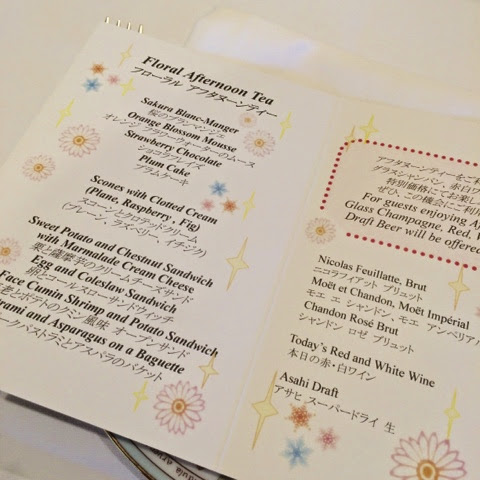 Floral Afternoon Tea
フローラル アフタヌーンティー
Sakura Blanc-Manger
桜のブランマンジェ
Orange Blossom Mousse
オレンジ フラワーウォーターのムース
Strawberry Chocolate
ショコラフレイズ
Plum Cake
プラムケーキ
Scones with Clotted Cream
(Plane, Raspberry , Fig)
スコーンとクロテッドクリーム
(プレーン, ラズベリー, イチジク)
Sweet Potato and Chestnut Sandwich
with Marmalade Cream Cheese
栗と薩摩芋のクリームチーズサンド
Egg and Coleslaw Sandwich
卵とコールスローサンドウィッチ
Face Cumin Shrimp and Potato Sandwich
老とポテトのクミン風味 オープンサンド
and Asparagus on a Baguette
パストラミとアスパラのバゲット
アフタヌーンティーをご利
グラスシャンパン、赤白ワ
特別価格にてお楽し
ぜひ、この機会にご利用
For guests enjoying Af
Glass Champagne, Red,
Draft Beer will be offere
Nicolas Feuillatte, Brut
ニコラフィアット ブリュット
Moët et Chandon, Moët Impérial
モエ エ シャンドン、モエ アンペリアル
Chandon Rosé Brut
シャンドン ロゼ ブリュット
Today's Red and White Wine
本日の赤・白ワイン
Asahi Draft
アサヒ スーパードライ 生